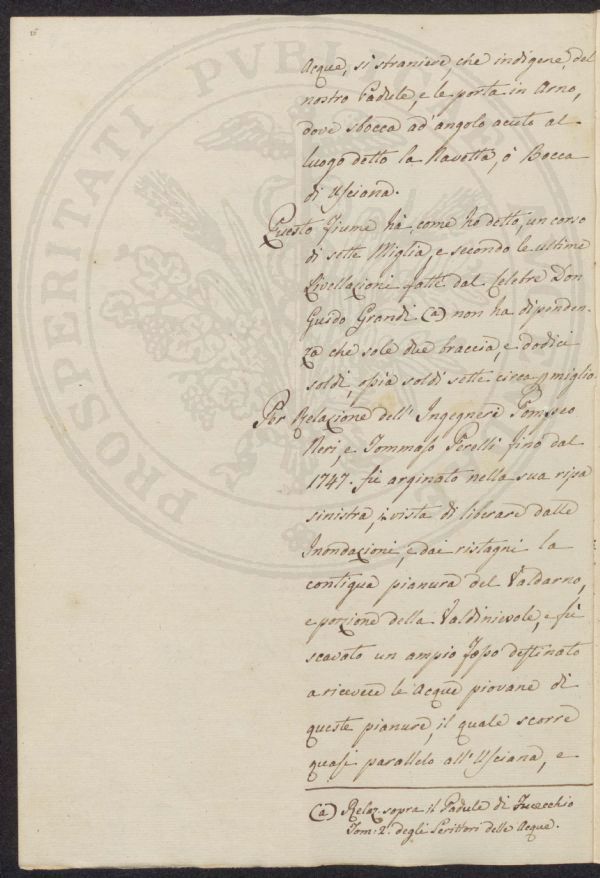 Acque, si straniere, che indigene, del
nostro Padule, e le porta in Arno,
dove sbocca ad angolo acuto al
luogo detto la Navetta, ò Bocca
di Usciana.
Questo Fiume hà, come ho detto, un corso
di sette Miglia, e secondo le ultime
Livellazioni fatte dal Celebre Don
Guido Grandi (a) non ha dipenden-
za che sole due braccia, e dodici
soldi, ossia soldi sette circa p miglio.
Per Relazione dell' Ingegnere Pompeo
Neri, e Tommaso Perelli fino dal
1747. fù arginato nella sua ripa
sinistra, in vista di liberare dalle
Inondazioni, e dai ristagni la
contigua pianura del Valdarno,
e porzione della Valdinievole, e fù
scavato un ampio Fosso destinato
a ricevere le Acque piovane di
queste pianure, il quale scorre
quasi parallelo all' Usciana, e
(a) Relaz. sopra il Padule di Fucecchio
Tom: 2.° degli Scrittori delle Acque.
PROSPERITATI PUBLICAE